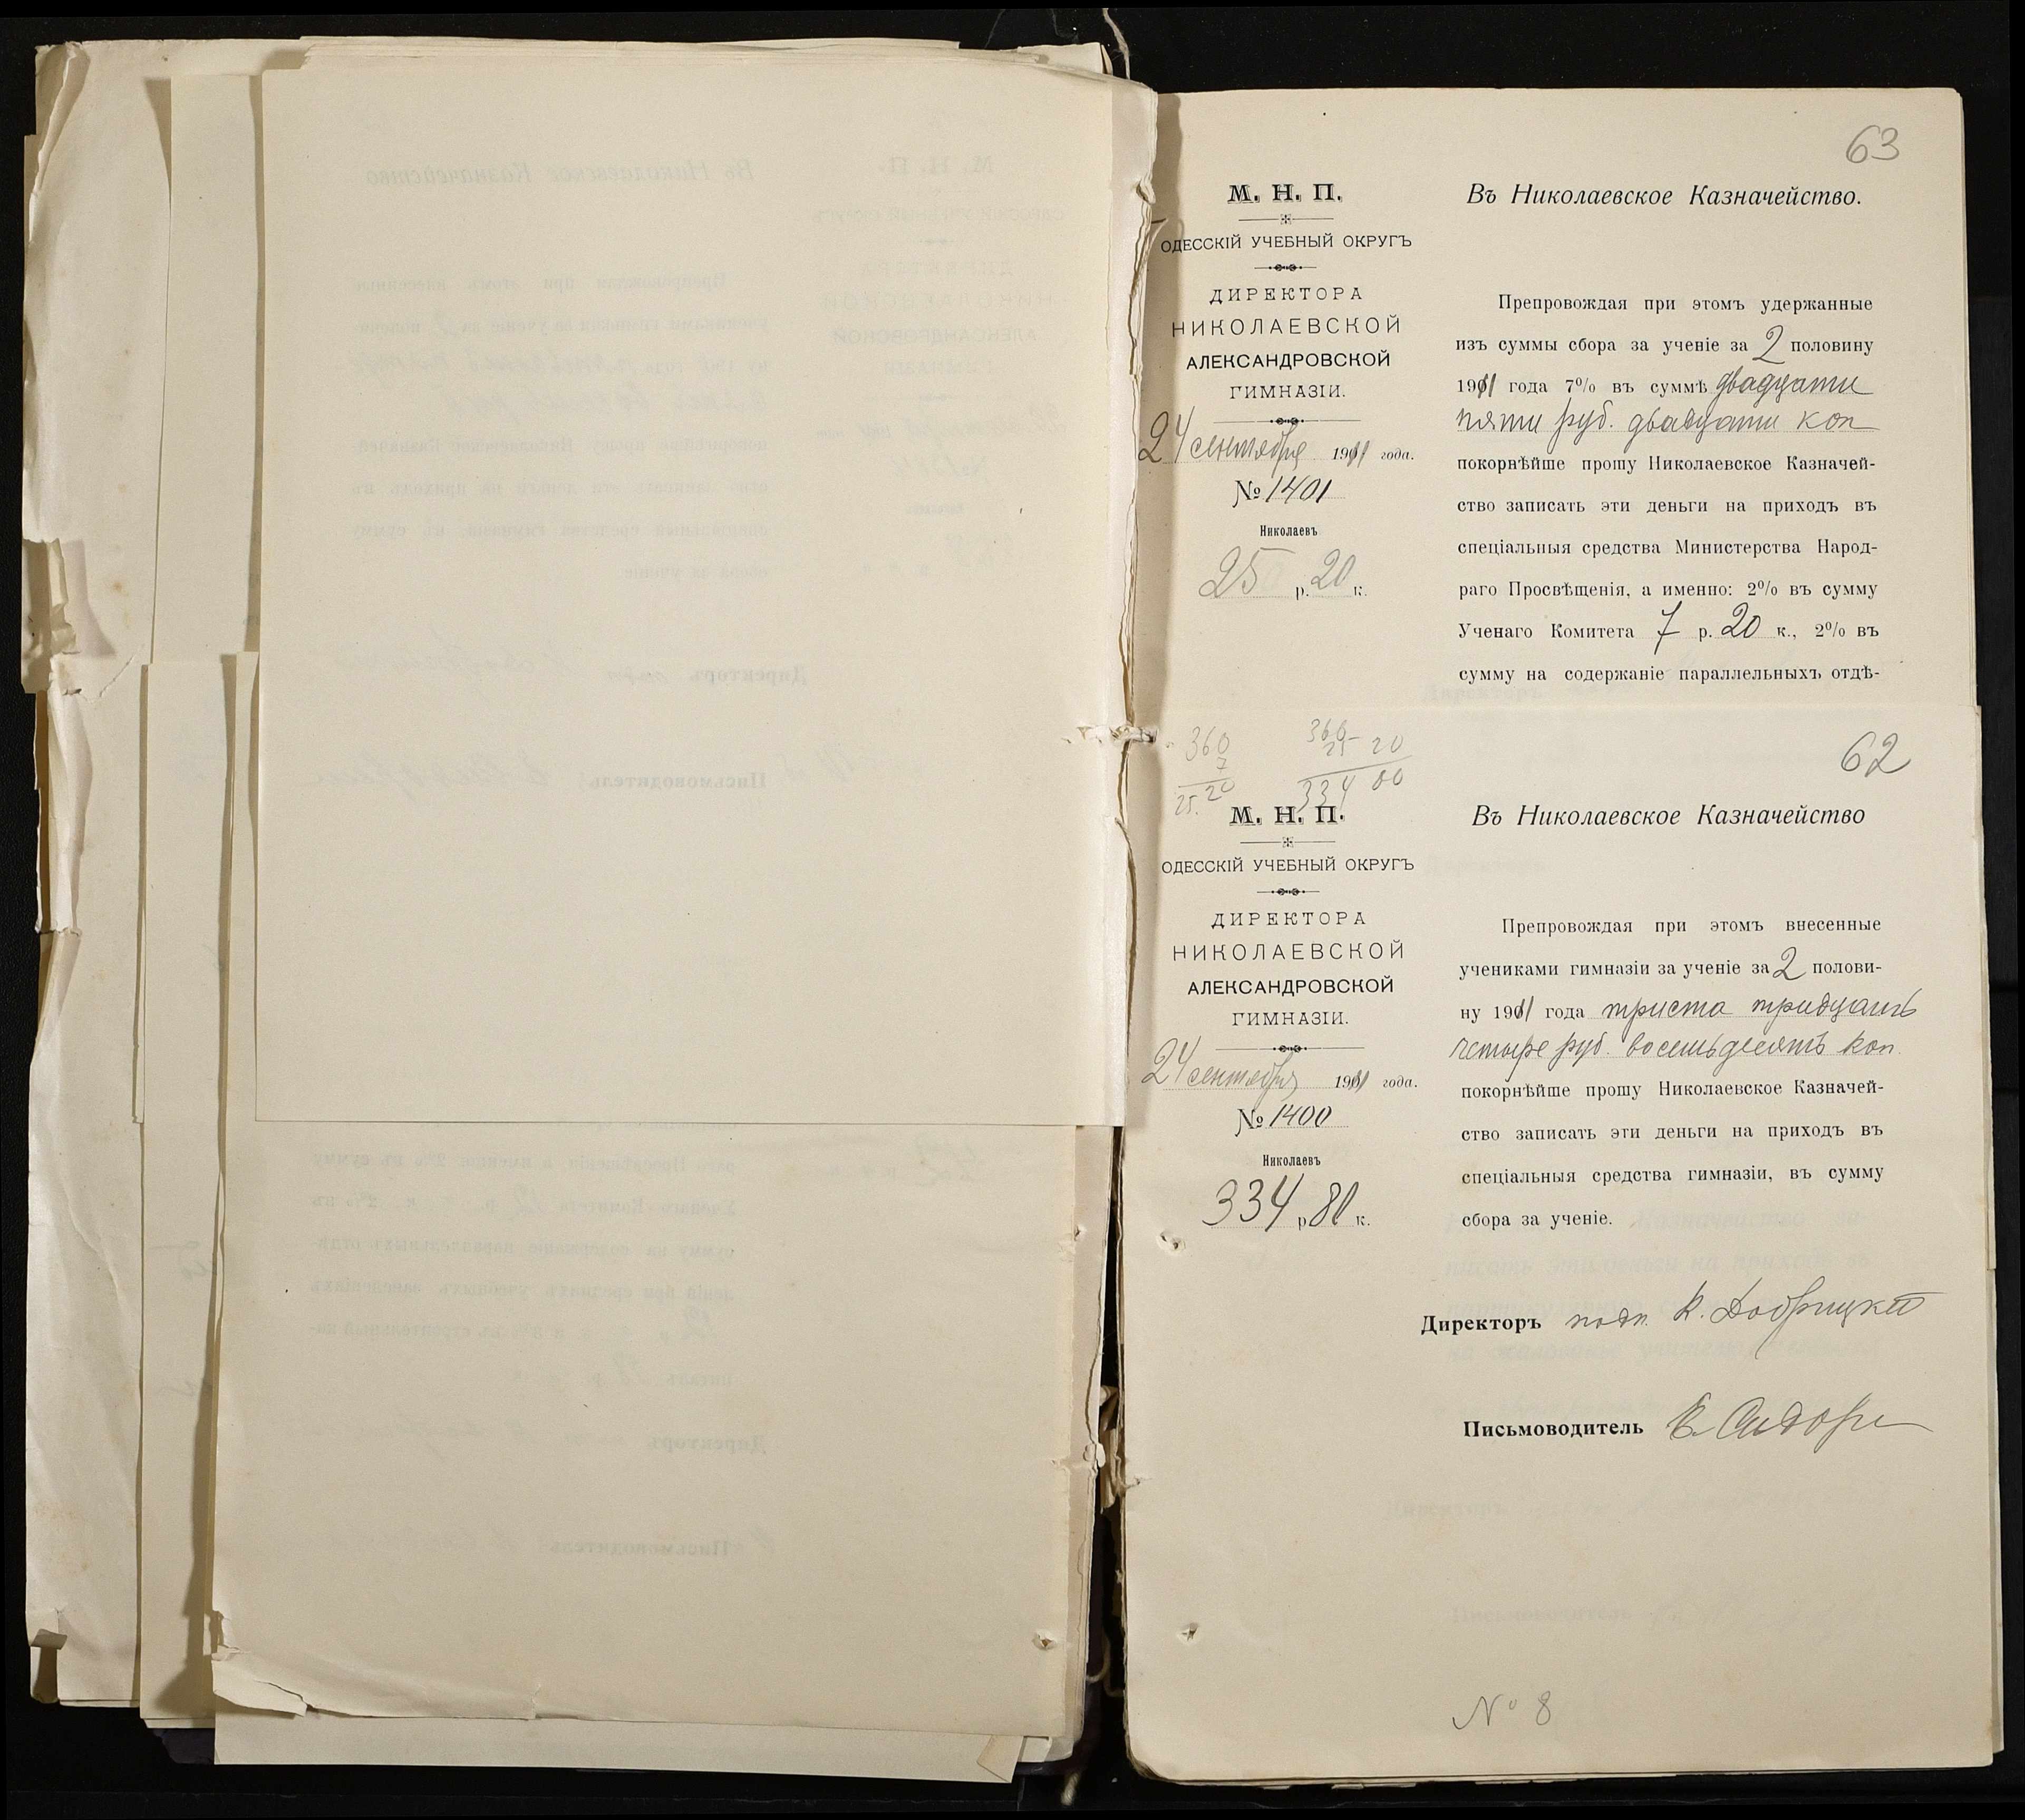 63
М. Н. П.
ОДЕССКІЙ УЧЕБНЫЙ ОКРУГЪ
ДИРЕКТОРА
НИКОЛАЕВСКОЙ
АЛЕКСАНДРОВСКОЙ
ГИМНАЗІИ.
24 сентября 1911 года.
№ 1401
Николаевъ
25 р. 20 к.
Въ Николаевское Казначейство.
Препровождая при этомъ удержанные
изъ суммы сбора за ученіе за 2 половину
1911 года 7% въ суммѣ двадцати
пяти руб. двадцати коп
покорнѣйше прошу Николаевское Казначей-
ство записать эти деньги на приходъ въ
спеціальныя средства Министерства Народ-
раго Просвѣщенія, а именно: 2% въ сумму
Ученаго Комитета 7 р. 20 к., 2% въ
сумму на содержаніе параллельныхъ отдѣ-
62
360
7
25.20
360-
25 20
334 80
М. Н. П.
ОДЕССКІЙ УЧЕБНЫЙ ОКРУГЪ
ДИРЕКТОРА
НИКОЛАЕВСКОЙ
АЛЕКСАНДРОВСКОЙ
ГИМНАЗІИ.
24 сентября 1911 года.
№ 1400
Николаевъ
334 р 80 к.
Въ Николаевское Казначейство
Препровождая при этомъ внесенные
учениками гимназіи за ученіе за 2 полови-
ну 1911 года триста тридцать
четыре руб. восемьдесятъ коп.
покорнѣйше прошу Николаевское Казначей-
ство записать эти деньги на приходъ въ
спеціальныя средства гимназіи, въ сумму
сбора за ученіе.
Директоръ подп. К. Добрицкій
Письмоводитель Е.
№ 8